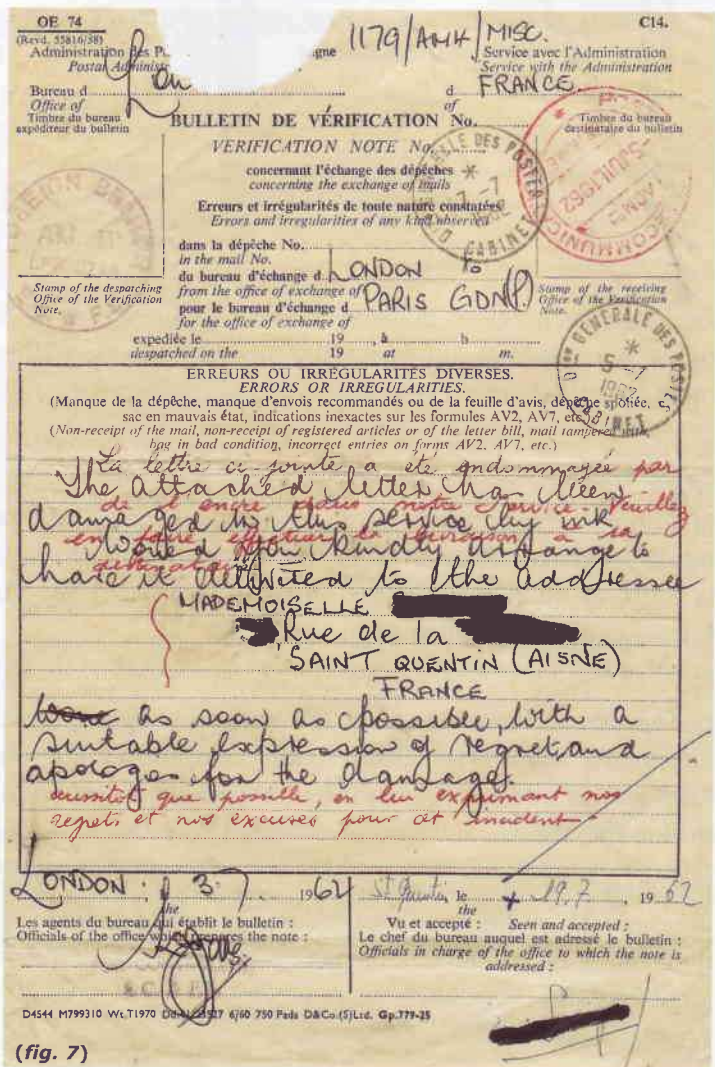 OE 74
C14.
(Revd. 55816/58)
1179/AMH/MISC.
Administration des P
gne
Service avec l'Administration
Postal Administr
Service with the Administration
Bureau d
Lon
d FRANCE.
Office of
of
Timbre du bureau
expéditeur du bulletin
BULLETIN DE VÉRIFICATION No.
Timbre du bureau
destinataire du bulletin
VERIFICATION NOTE No.
concernant l'échange des dépêches
concerning the exchange of mails
Erreurs et irrégularités de toute nature constatées
Errors and irregularities of any kind observed
dans la dépêche No.
in the mail No.
du bureau d'échange d LONDON To
from the office of exchange of
pour le bureau d'échange d PARIS GDN(P)
for the office of exchange of
Stamp of the despatching
Office of the Verification
Note.
Stamp of the receiving
Office of the Verification
Note.
expediée le 19 , à h m.
despatched on the 19 at m.
FOREIGN
5 JUIL 1962
GENERALE DES POSTES
7-7
1962
CABINET
Don GENERALE DES POSTES
5-7
1962
CABINET
ERREURS OU IRRÉGULARITÉS DIVERSES.
ERRORS OR IRREGULARITIES.
(Manque de la dépêche, manque d'envois recommandés ou de la feuille d'avis, dépêche spoliée,
sac en mauvais état, indications inexactes sur les formules AV2, AV7, etc.)
(Non-receipt of the mail, non-receipt of registered articles or of the letter bill, mail tampered with,
bag in bad condition, incorrect entries on forms AV2. AV7, etc.)
La lettre ci-jointe a été endommagée par
The attached letter has been
de l'encre dans notre service. Veuillez
damaged in this service by ink
en faire effectuer la livraison à sa
Would you kindly arrange to
destinataire
have it delivered to the addressee
MADEMOISELLE
Rue de la
SAINT QUENTIN (AISNE)
FRANCE
as soon as possible, with a
suitable expression of regret, and
apologes for the damage.
aussitôt que possible, en lui exprimant nos
regrets et nos excuses pour cet incident
LONDON. 3.7. 1962
St Quentin, le 19.7 1962
the
the
Les agents du bureau qui établit le bulletin :
Vu et accepté : Seen and accepted :
Officials of the office which prepares the note :
Le chef du bureau auquel est adressé le bulletin :
Officials in charge of the office to which the note is
addressed :
D4544 M799310 Wt.T1970 6/60 750 Pads D&Co.(S)Ltd. Gp.779-25
(fig. 7)